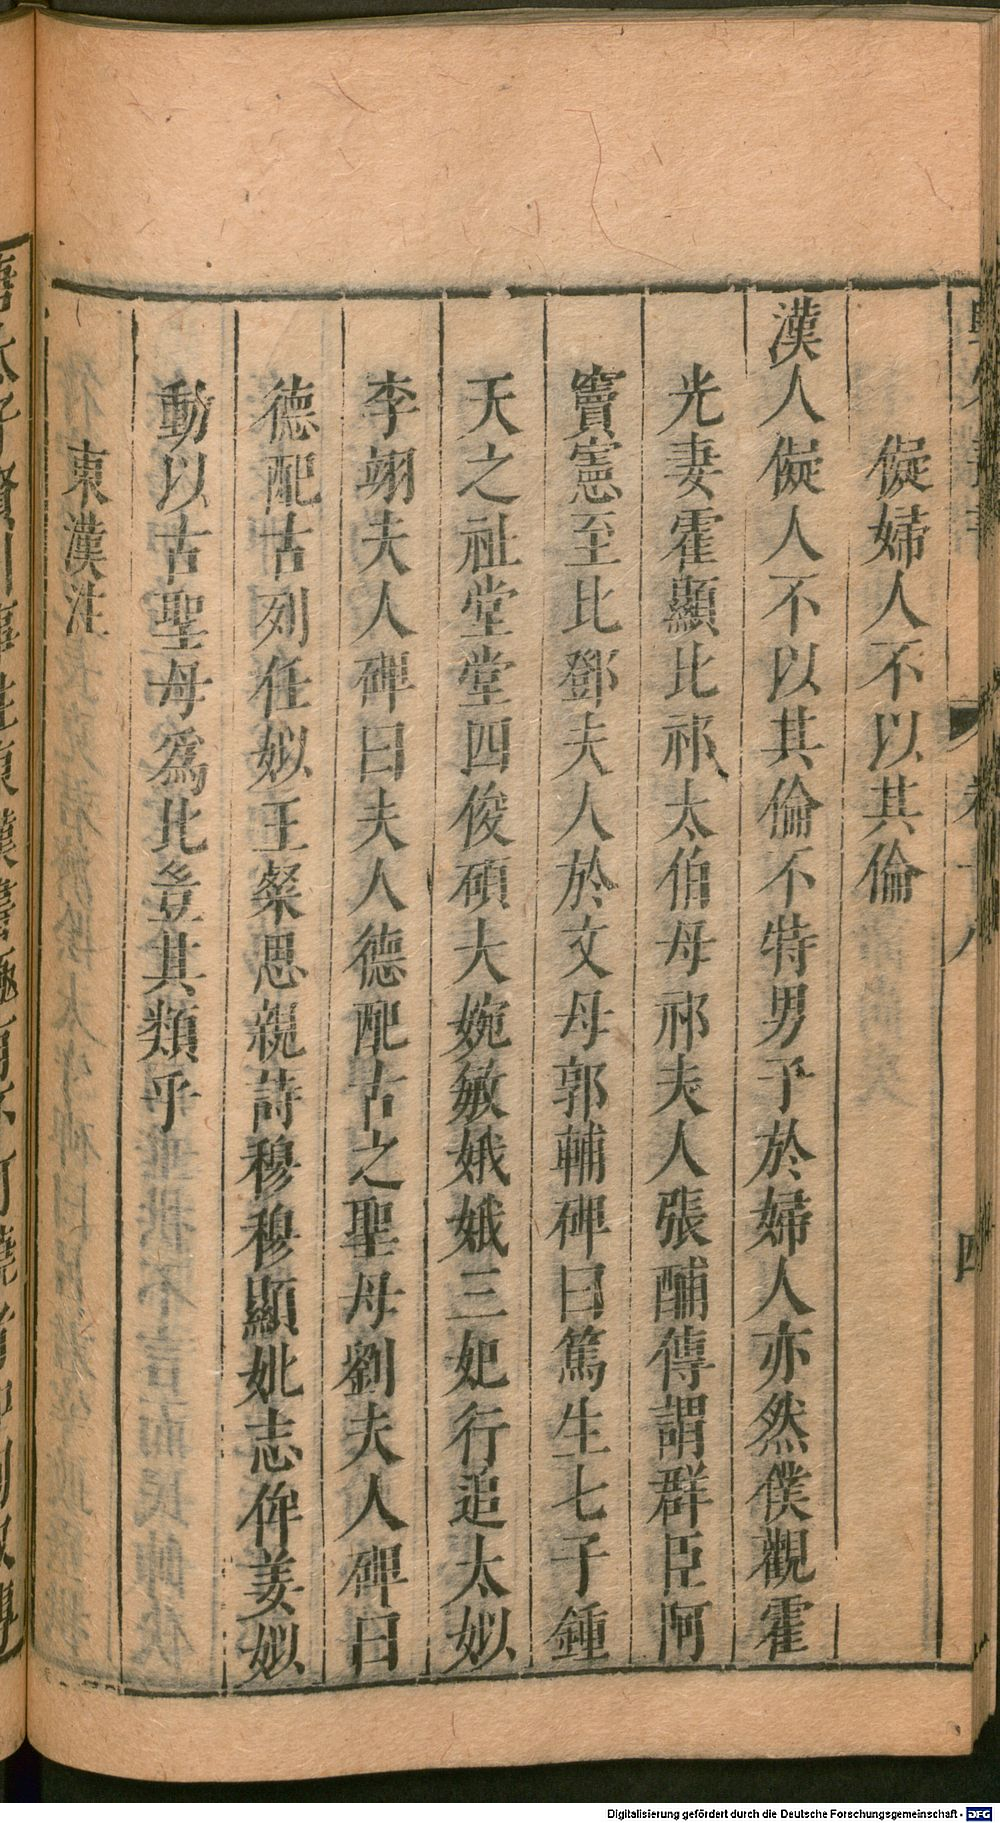 儗婦人不以其倫
漢人儗人不以其倫不特男子於婦人亦然僕觀霍
光妻霍顯比祁太伯母祁夫人張酺傳謂群臣阿
竇憲至比鄧夫人於文母郭輔碑曰篤生七子鍾
天之祉堂堂四俊碩大婉敏娥娥三妃行追太姒
李翊夫人碑曰夫人德配古之聖母劉夫人碑曰
德配古列任姒王粲思親詩穆穆顯妣志侔姜姒
動以古聖母爲比豈其類乎
東漢注
卷十八
四
Digitalisierung gefördert durch die Deutsche Forschungsgemeinschaft - DFG